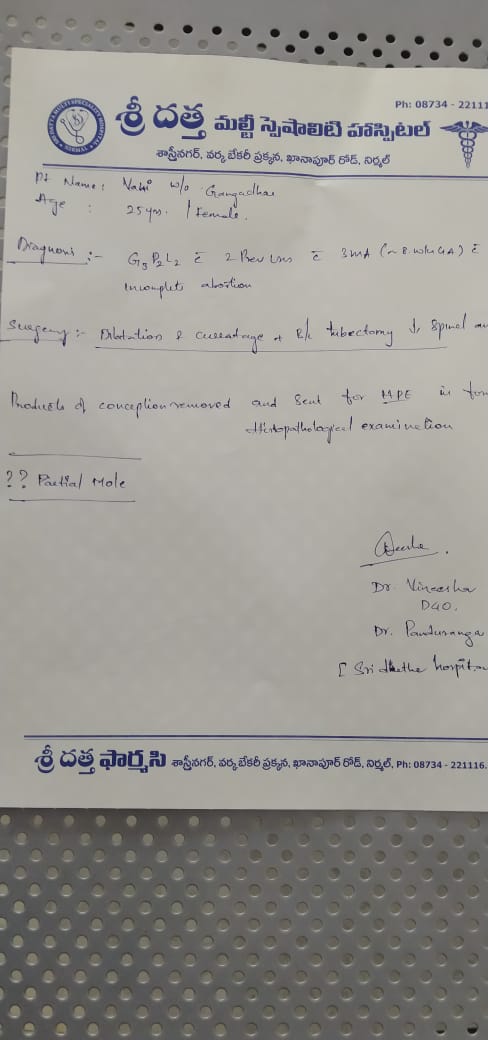 Ph: 08734 - 22111
శ్రీ దత్త మల్టీ స్పెషాలిటి హాస్పిటల్
శాస్త్రీనగర్, వర్మ బేకరీ ప్రక్కన, ఖానాపూర్ రోడ్, నిర్మల్
Pt Name: W/o Gangadhar
Age : 25yrs. / Female.
Diagnosis :- G3 P2 L2 c̄ 2 Prev c̄ 3MA (~ 8 wks GA) c̄
Incomplete abortion
Surgery :- Dilatation & curratage + B/L tubectomy ↓ Spinal
Products of conception removed and sent for HPE in
Histopathological examination
?? Partial Mole
Dr. Vineesha
DGO.
Dr. Panduranga
శ్రీ దత్త ఫార్మసి శాస్త్రీనగర్, వర్మ బేకరీ ప్రక్కన, ఖానాపూర్ రోడ్, నిర్మల్, Ph: 08734 - 221116.